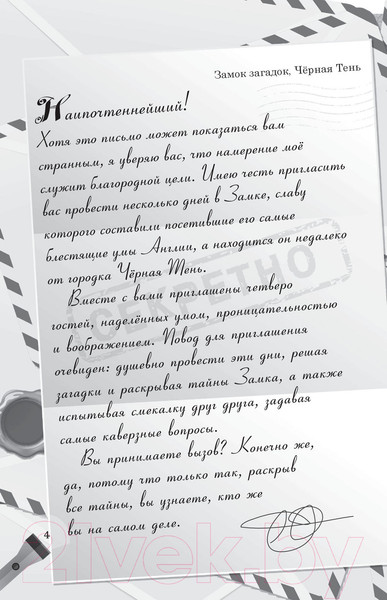 Замок загадок, Чёрная Тень
Наипочтеннейший!
Хотя это письмо может показаться вам
странным, я уверяю вас, что намерение моё
служит благородной цели. Имею честь пригласить
вас провести несколько дней в Замке, славу
которого составили посетившие его самые
блестящие умы Англии, а находится он недалеко
от городка Чёрная Тень.
СЕКРЕТНО
Вместе с вами приглашены четверо
гостей, наделённых умом, проницательностью
и воображением. Повод для приглашения
очевиден: душевно провести эти дни, решая
загадки и раскрывая тайны Замка, а также
испытывая смекалку друг друга, задавая
самые каверзные вопросы.
Вы принимаете вызов? Конечно же,
да, потому что только так, раскрыв
все тайны, вы узнаете, кто же
вы на самом деле.
4
21vek.by